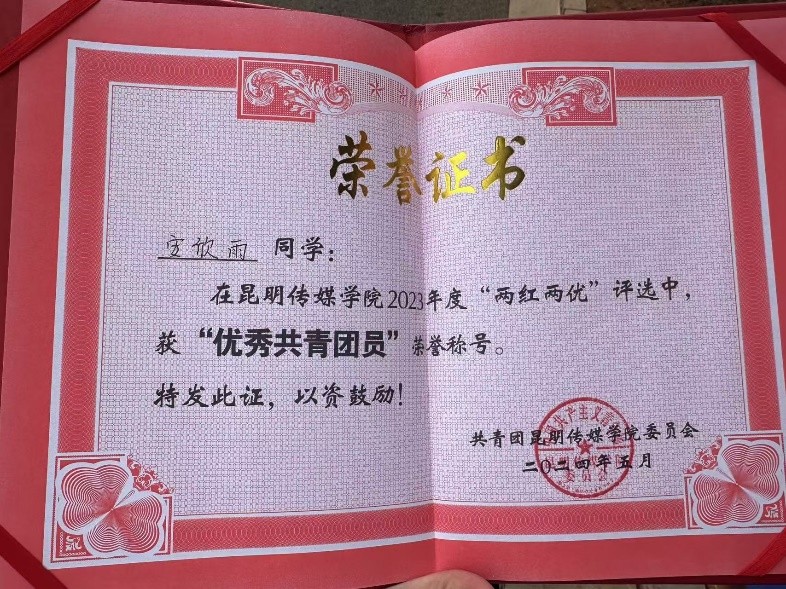 荣誉证书
定欣雨 同学：
在昆明传媒学院2023年度“两红两优”评选中，
获“优秀共青团员”荣誉称号。
特发此证，以资鼓励！
共青团昆明传媒学院委员会
二〇二四年五月